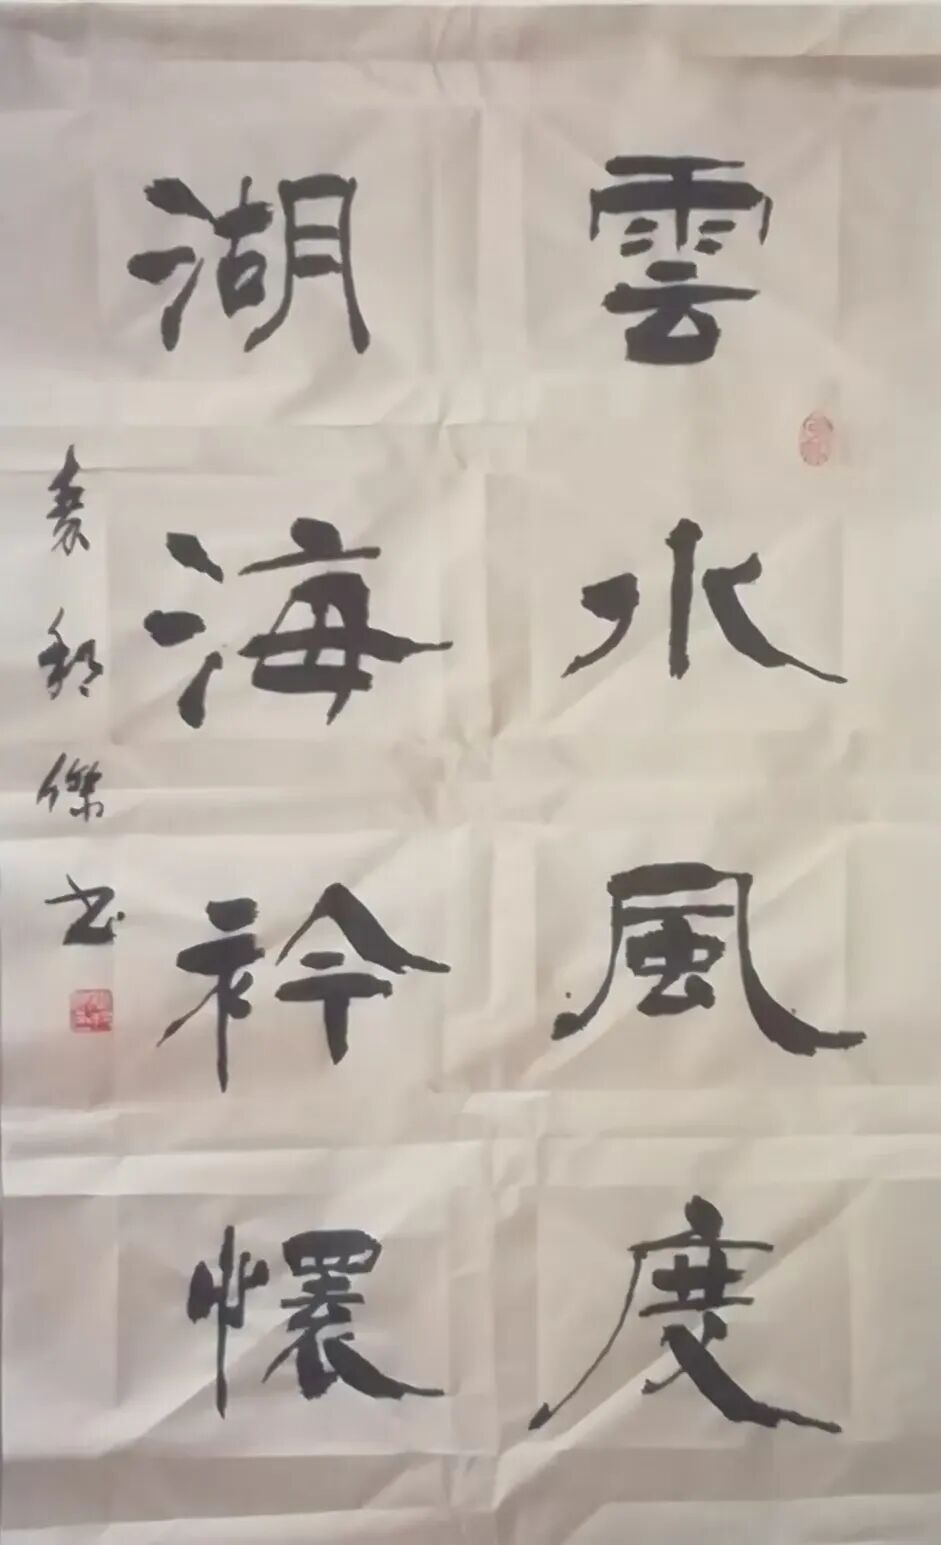 雲水風度
湖海衿懷
袁利傑书